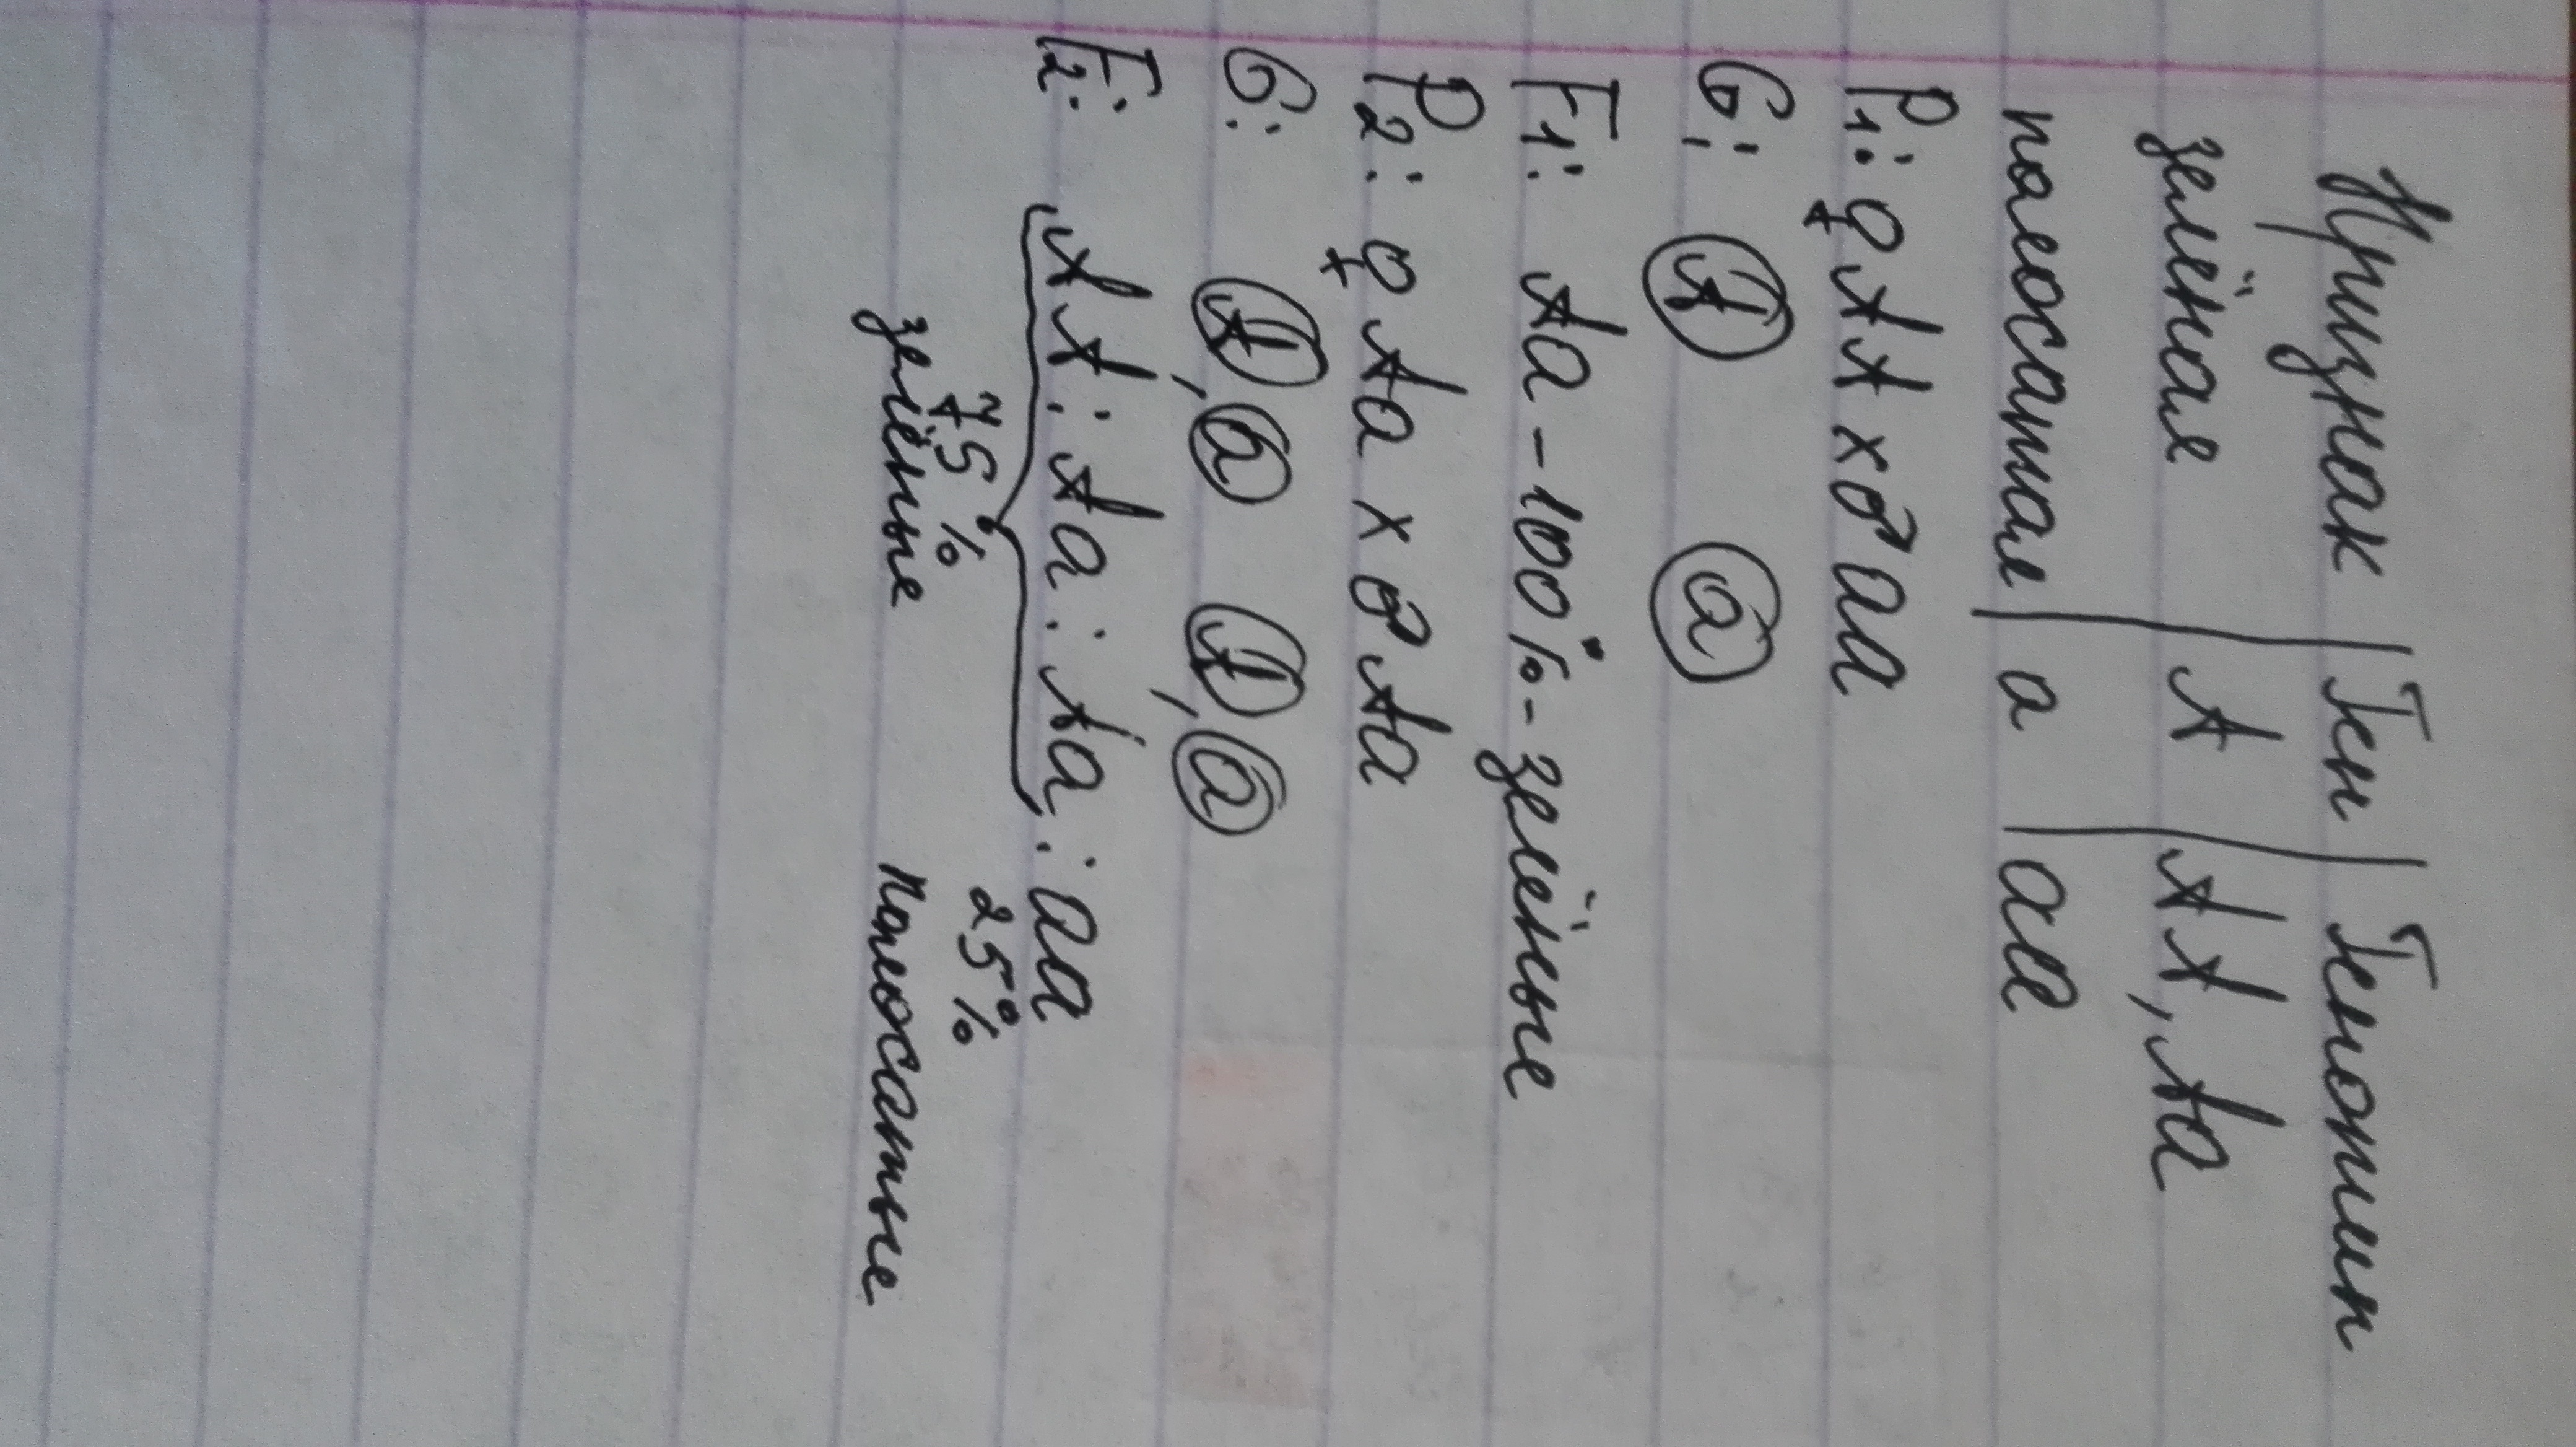 Признак | Ген | Генотип
зелёная | A | AA, Aa
полосатая | a | aa
P1: ♀ AA x ♂ aa
G: A a
F1: Aa - 100% - зелёные
P2: ♀ Aa x ♂ Aa
G: A, a A, a
F2: AA : Aa : Aa : aa
75% 25%
зелёные полосатые